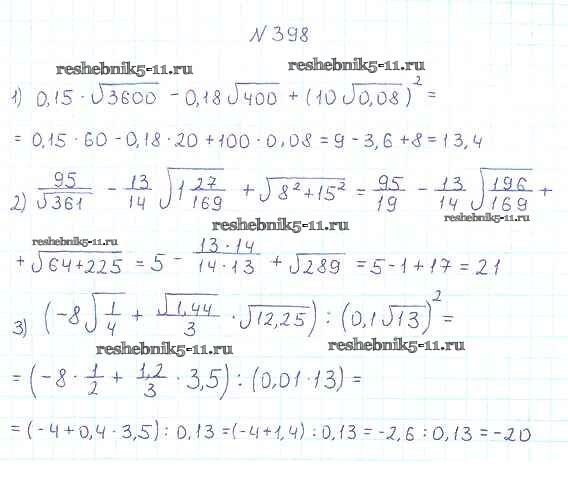 № 398
reshebnik5-11.ru reshebnik5-11.ru
1) 0,15 · √3600 - 0,18 √400 + (10 √0,08)² =
= 0,15 · 60 - 0,18 · 20 + 100 · 0,08 = 9 - 3,6 + 8 = 13,4
2) 95/√361 - 13/14 √(1 27/169) + √(8² + 15²) = 95/19 - 13/14 √(196/169) +
reshebnik5-11.ru reshebnik5-11.ru
reshebnik5-11.ru
+ √(64 + 225) = 5 - (13 · 14)/(14 · 13) + √289 = 5 - 1 + 17 = 21
3) (-8 √(1/4) + √1,44/3 · √12,25) : (0,1 √13)² =
reshebnik5-11.ru reshebnik5-11.ru
= (-8 · 1/2 + 1,2/3 · 3,5) : (0,01 · 13) =
= (-4 + 0,4 · 3,5) : 0,13 = (-4 + 1,4) : 0,13 = -2,6 : 0,13 = -20